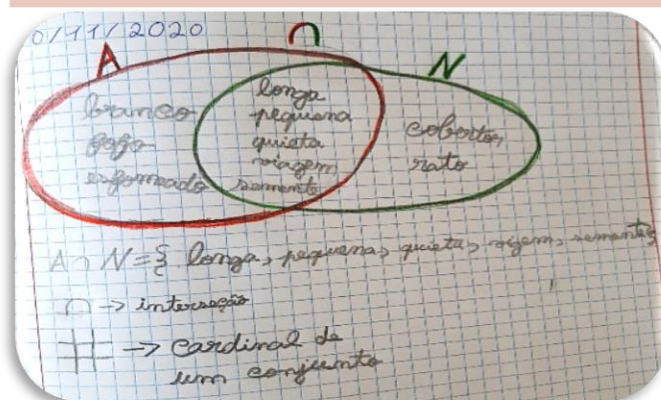 0/11/2020
A ∩ N
branco
fofo
esfomeado
longa
pequena
quieta
viagem
semente
cobertor
rato
A ∩ N = { longa, pequena, quieta, viagem, semente}
∩ -> interseção
# -> Cardinal de
um conjunto